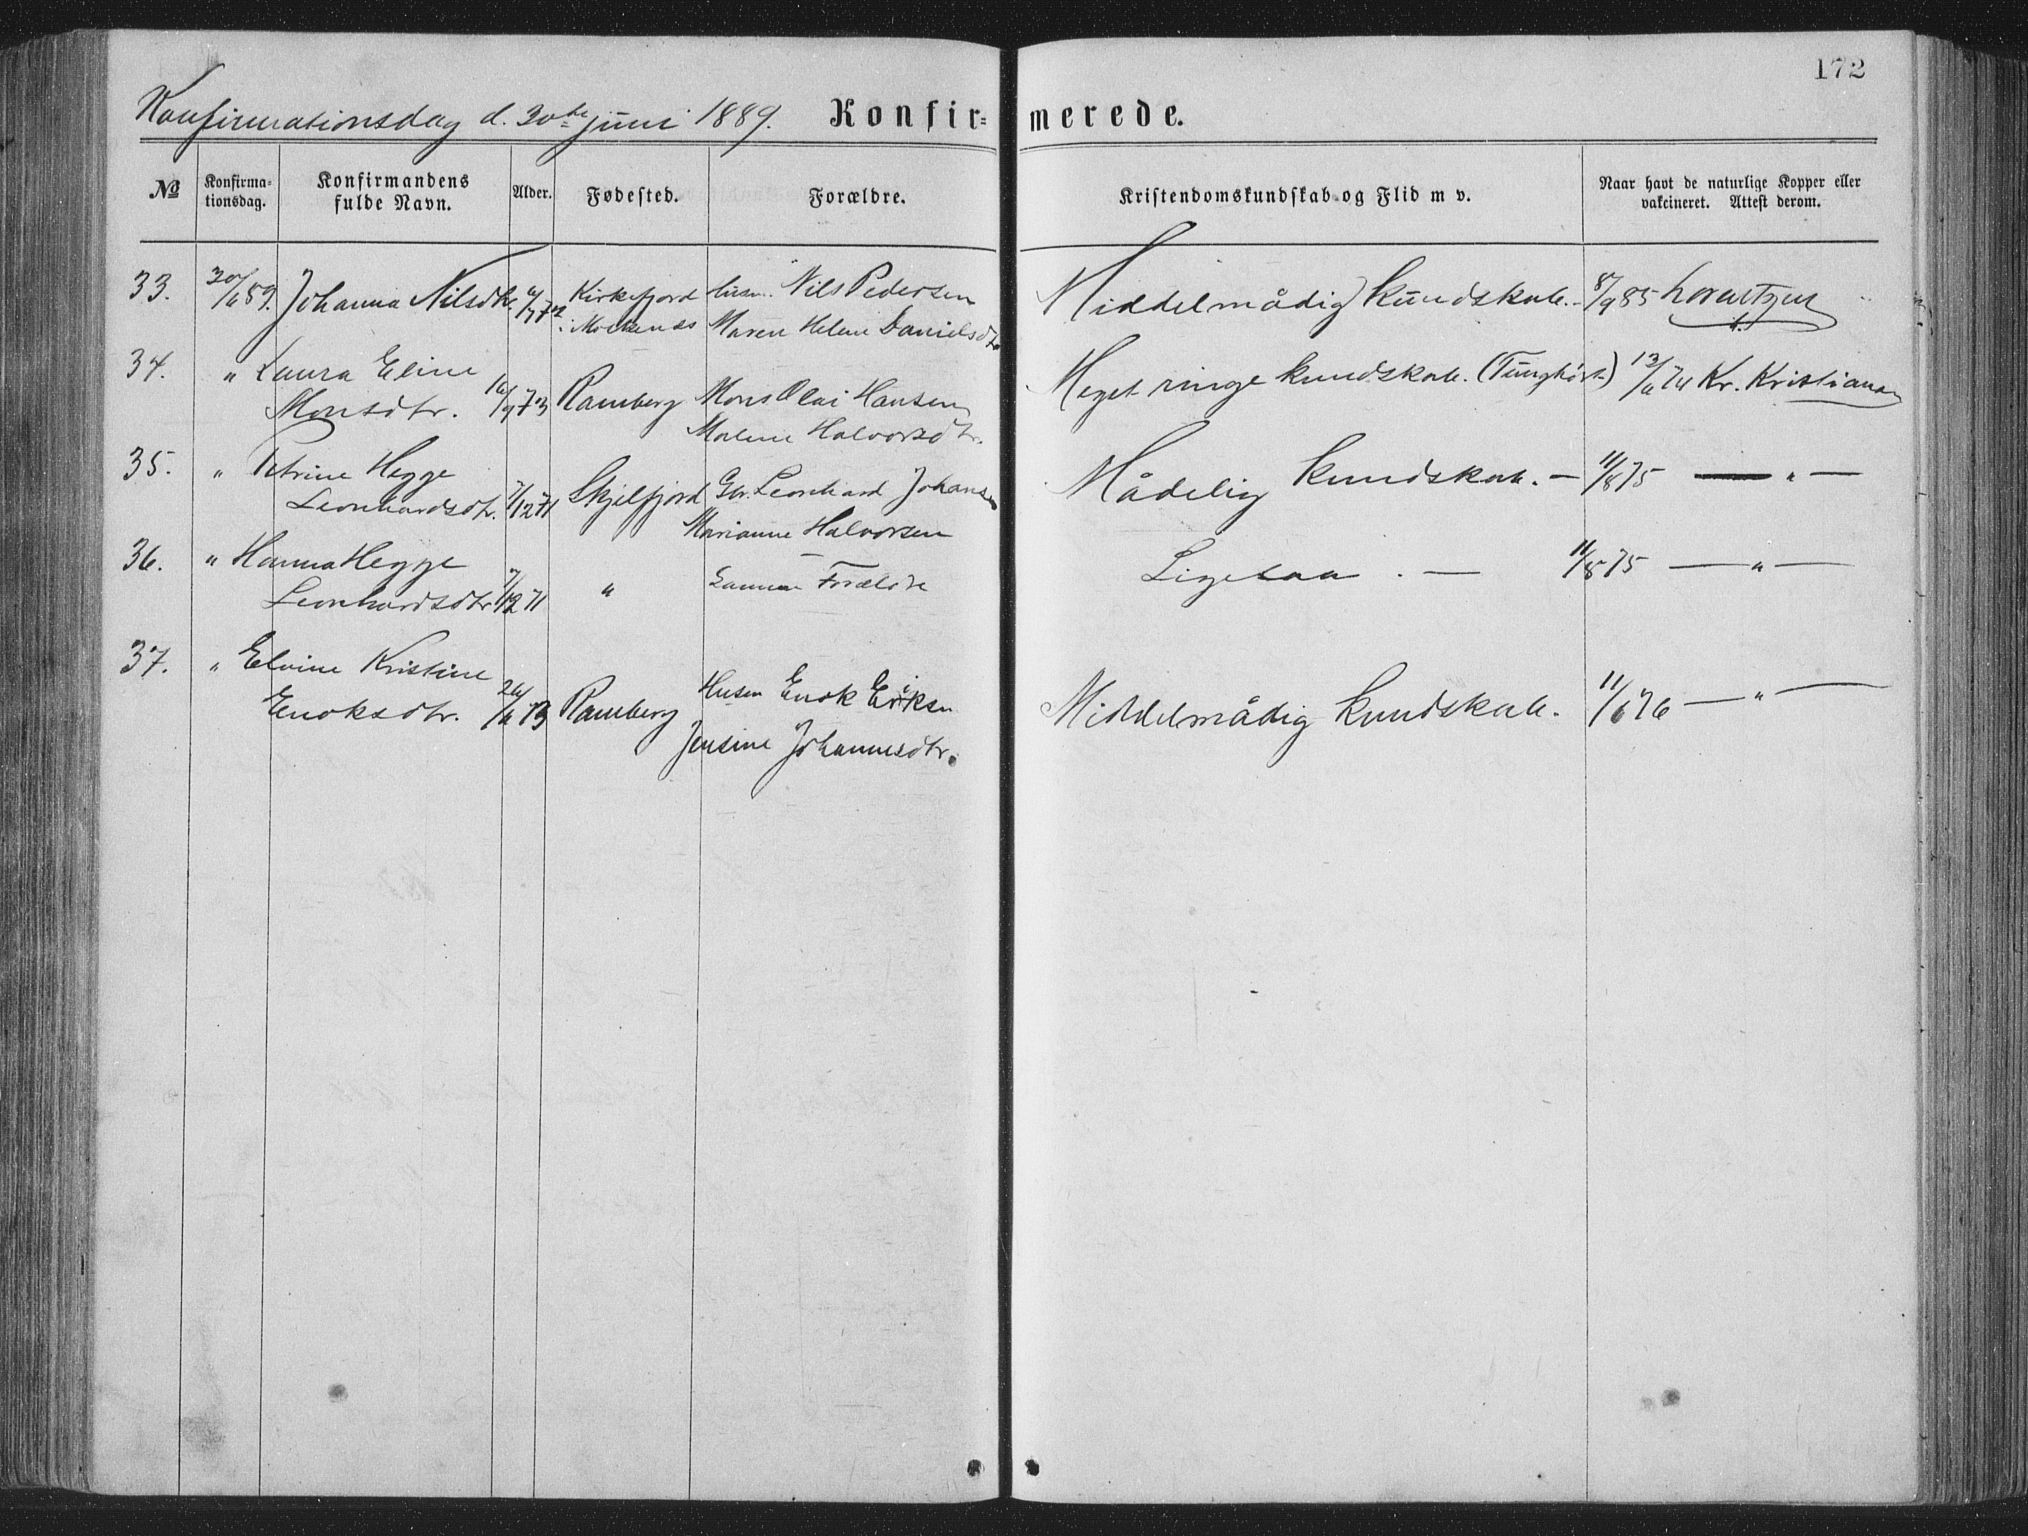 172
Konfirmationsdag d. 30te juni 1889. Konfirmerede.
№ Konfirmationsdag. Konfirmandens fulde Navn. Alder. Fødested. Forældre. Kristendomskundskab og Flid m v. Naar havt de naturlige Kopper eller vakcineret. Attest derom.
33. 30/6 89. Johanna Nilsdtr. 72 Kirkefjord Nils Pedersen Middelmådig kundskab. 8/9 85 Lorentzen
Maren Helene Danielsdtr
34. " Laura Eline Meget ringe kundskab. (Tunghørt) 13/6 74 Kr. Kristiansen
Monsdtr. 16/9 73 Ramberg Mons Olai Hansen
Malene Halvorsdtr.
35. " Petrine Hegge Mådelig kundskab. — 11/8 75 — " —
Leonhardsdtr. 7/12 71 Skjelfjord Gbr. Leonhard Johansen
Marianne Halvorsen
36. " Hanna Hegge Ligesaa. — 11/8 75 — " —
Leonhardsdtr 7/12 71 " Samme Forældre
37. " Elvine Kristine
Enoksdtr. 26/6 73 Ramberg Husm Enok Eriksen Middelmådig kundskab. 11/6 76 — " —
Jensine Johannesdtr.